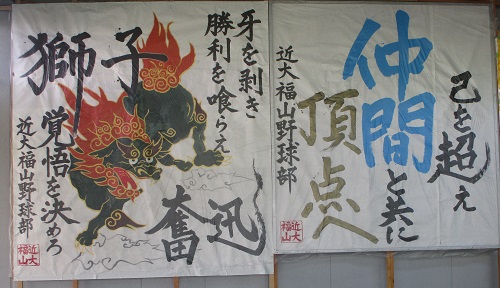 牙を剥き
勝利を喰らえ
獅子
奮迅
覚悟を決めろ
近大福山野球部
近大
福山
己を超え
仲間と共に
頂点へ
近大福山野球部
近大
福山